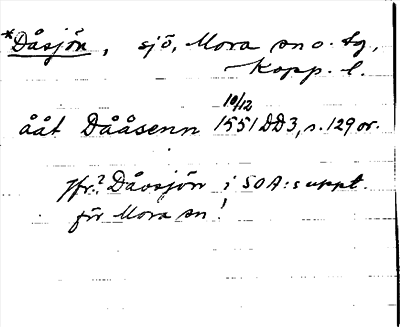 *Dåsjön, sjö, Mora sn o. tg,
Kopp. l.
10/12
ååt Dååsenn 1551 DD3, s. 129 or.
Jfr.? Dåosjön i SOA:s uppt.
för Mora sn!